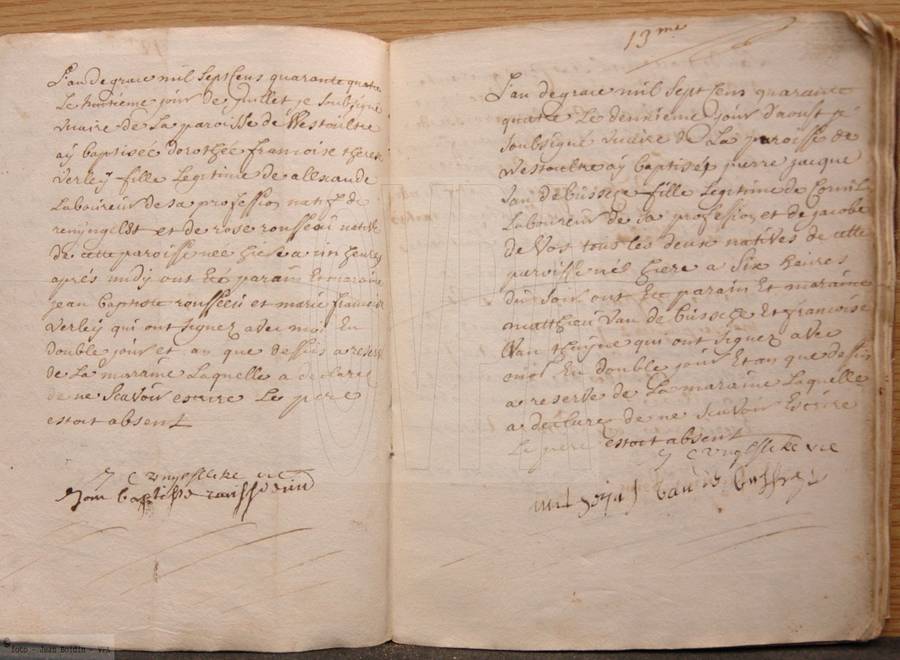 L'an de grace mil Sept Cens quarante quatre
Le huitième jour de juillet je Soubsigné
vicaire de La paroisse de Westoultre
aÿ baptiseé dorothée francoise therese
verleÿ fille Legitime de allexandre
Laboureur de sa profession natif de
renÿngelst et de rose rousseau native
de cette paroisse née hiere a heures
aprés midÿ ont Eté parain Et maraine
jean baptiste et marie francoise
verleÿ qui ont signez avec moi En
double jour et an que dessus a reserve
de La maraine Laquelle a declaré
de ne Scavoir escrire Le pere
estoit absent
vic
Jan baptiste
13me
L'an de grace mil Sept Cens quarante
quatre Le deuxième jour d'aoust je
soubsigné vicaire de La paroisse de
Westoultre aÿ baptisée pierre jacque
Van de bussche fille Legitime de
Laboureur de sa profession et de jacobe
de Vos tous les deux natives de cette
paroisse né hiere a Six heures
du Soir ont Eté parain Et maraine
matthieu Van de bussche Et francoise
Van qui ont signez avec
moi En double jour Et an que dessus
a reserve de La maraine Laquelle
a declare de ne Scavoir Escrire
Le pere estoit absent
vic
foto - Jean Boidin - VVF